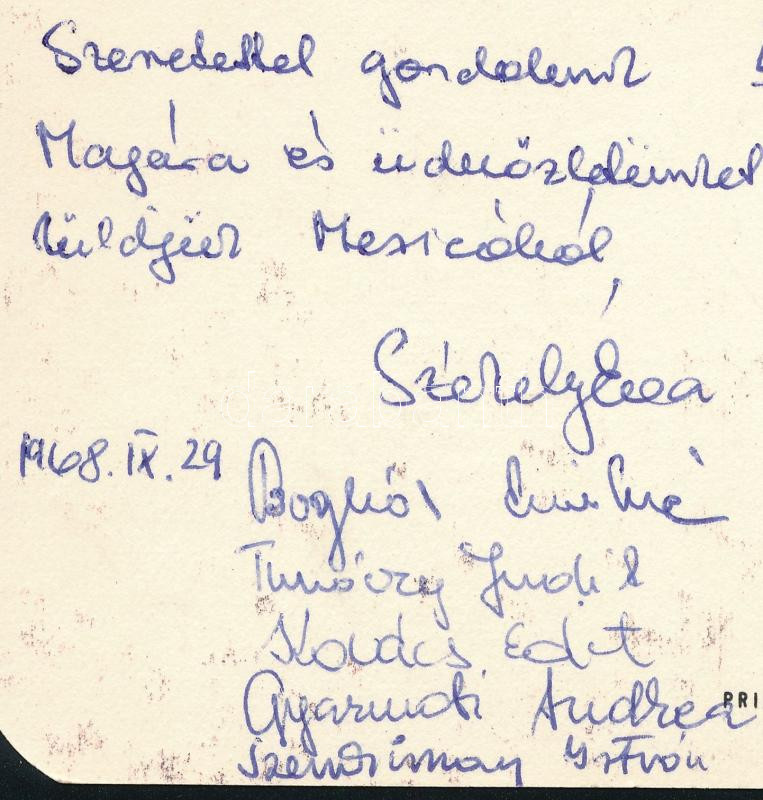 Szeretettel gondolunk
Magára és üdvözletünket
küldjük Mexicóból
Székely Éva
1968. IX. 29
Boglár
Turóczy Judit
Kovács Edit
Gyarmati Andrea
PRI
Szentirmay István